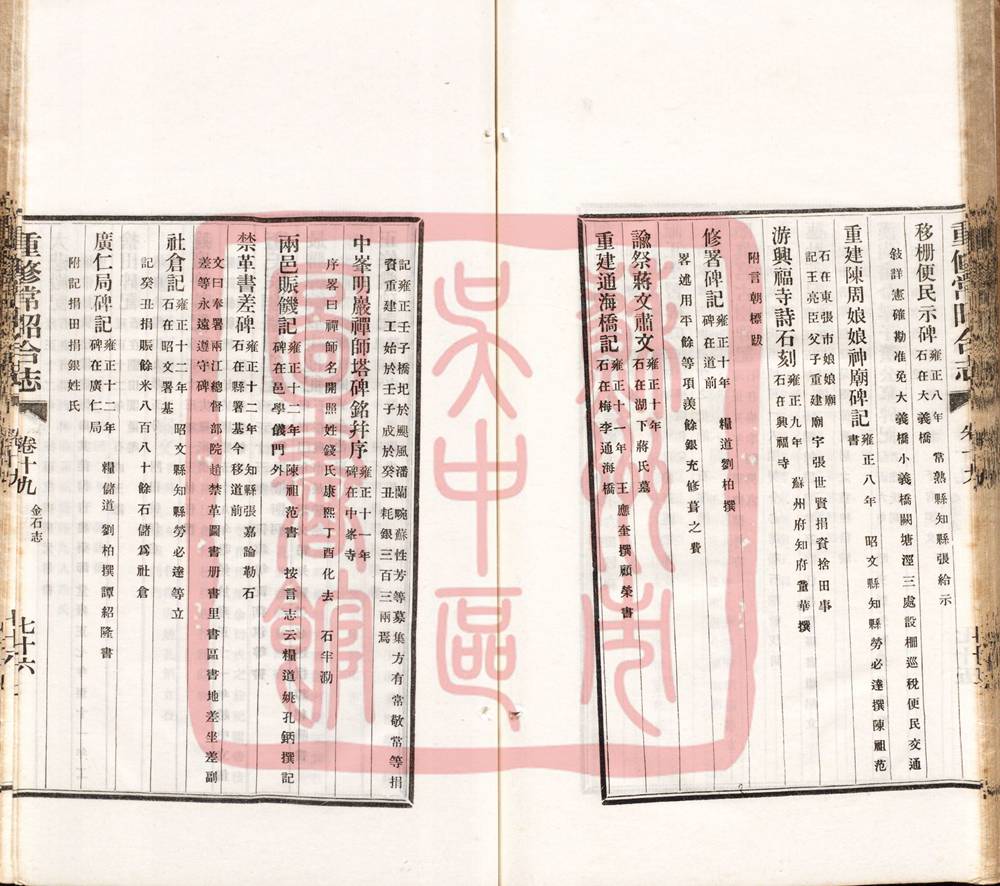 移柵便民示碑 雍正八年 常熟縣知縣張給示
石在大義橋
詳憲確勘准免大義橋小義橋關塘涇三處設柵巡稅便民交通
重建陳周娘娘神廟碑記 雍正八年 昭文縣知縣勞必達撰陳祖范
書
石在東張市娘娘廟
記王亮臣父子重建廟宇張世賢捐資捨田事
游興福寺詩石刻 雍正九年 蘇州府知府童華撰
石在興福寺
附言朝標跋
修署碑記 雍正十年 糧道劉柏撰
碑在道前
畧述用平餘等項羨餘銀充修葺之費
諭祭蔣文肅文 雍正十年
石在湖下蔣氏墓
重建通海橋記 雍正十一年 王應奎撰顧榮書
石在梅李通海橋
記雍正壬子橋圯於颶風潘蘭畹蘇性芳等募集方有常敬常等捐
資重建工始於壬子成於癸丑耗銀三百三兩焉
中峯明巖禪師塔碑銘幷序 雍正十一年
碑在中峯寺
序畧曰禪師名開照姓錢氏康熙丁酉化去 石半泐
兩邑賑饑記 雍正十二年 陳祖范書 按言志云糧道姚孔鈵撰記
碑在邑學儀門外
禁革書差碑 雍正十二年 知縣張嘉論勒石
石在縣署基今移道前
文曰奉署兩江總督部院趙禁革圖書册書里書區書地差坐差副
差等永遠遵守碑
社倉記 雍正十二年 昭文縣知縣勞必達等立
石在昭文署基
記癸丑捐賑餘米八百八十餘石儲爲社倉
廣仁局碑記 雍正十二年 糧儲道劉柏撰譚紹隆書
碑在廣仁局
附記捐田捐銀姓氏
重修常昭合志 卷十九 金石志 七十六
蘇州市
吳中區
圖書館